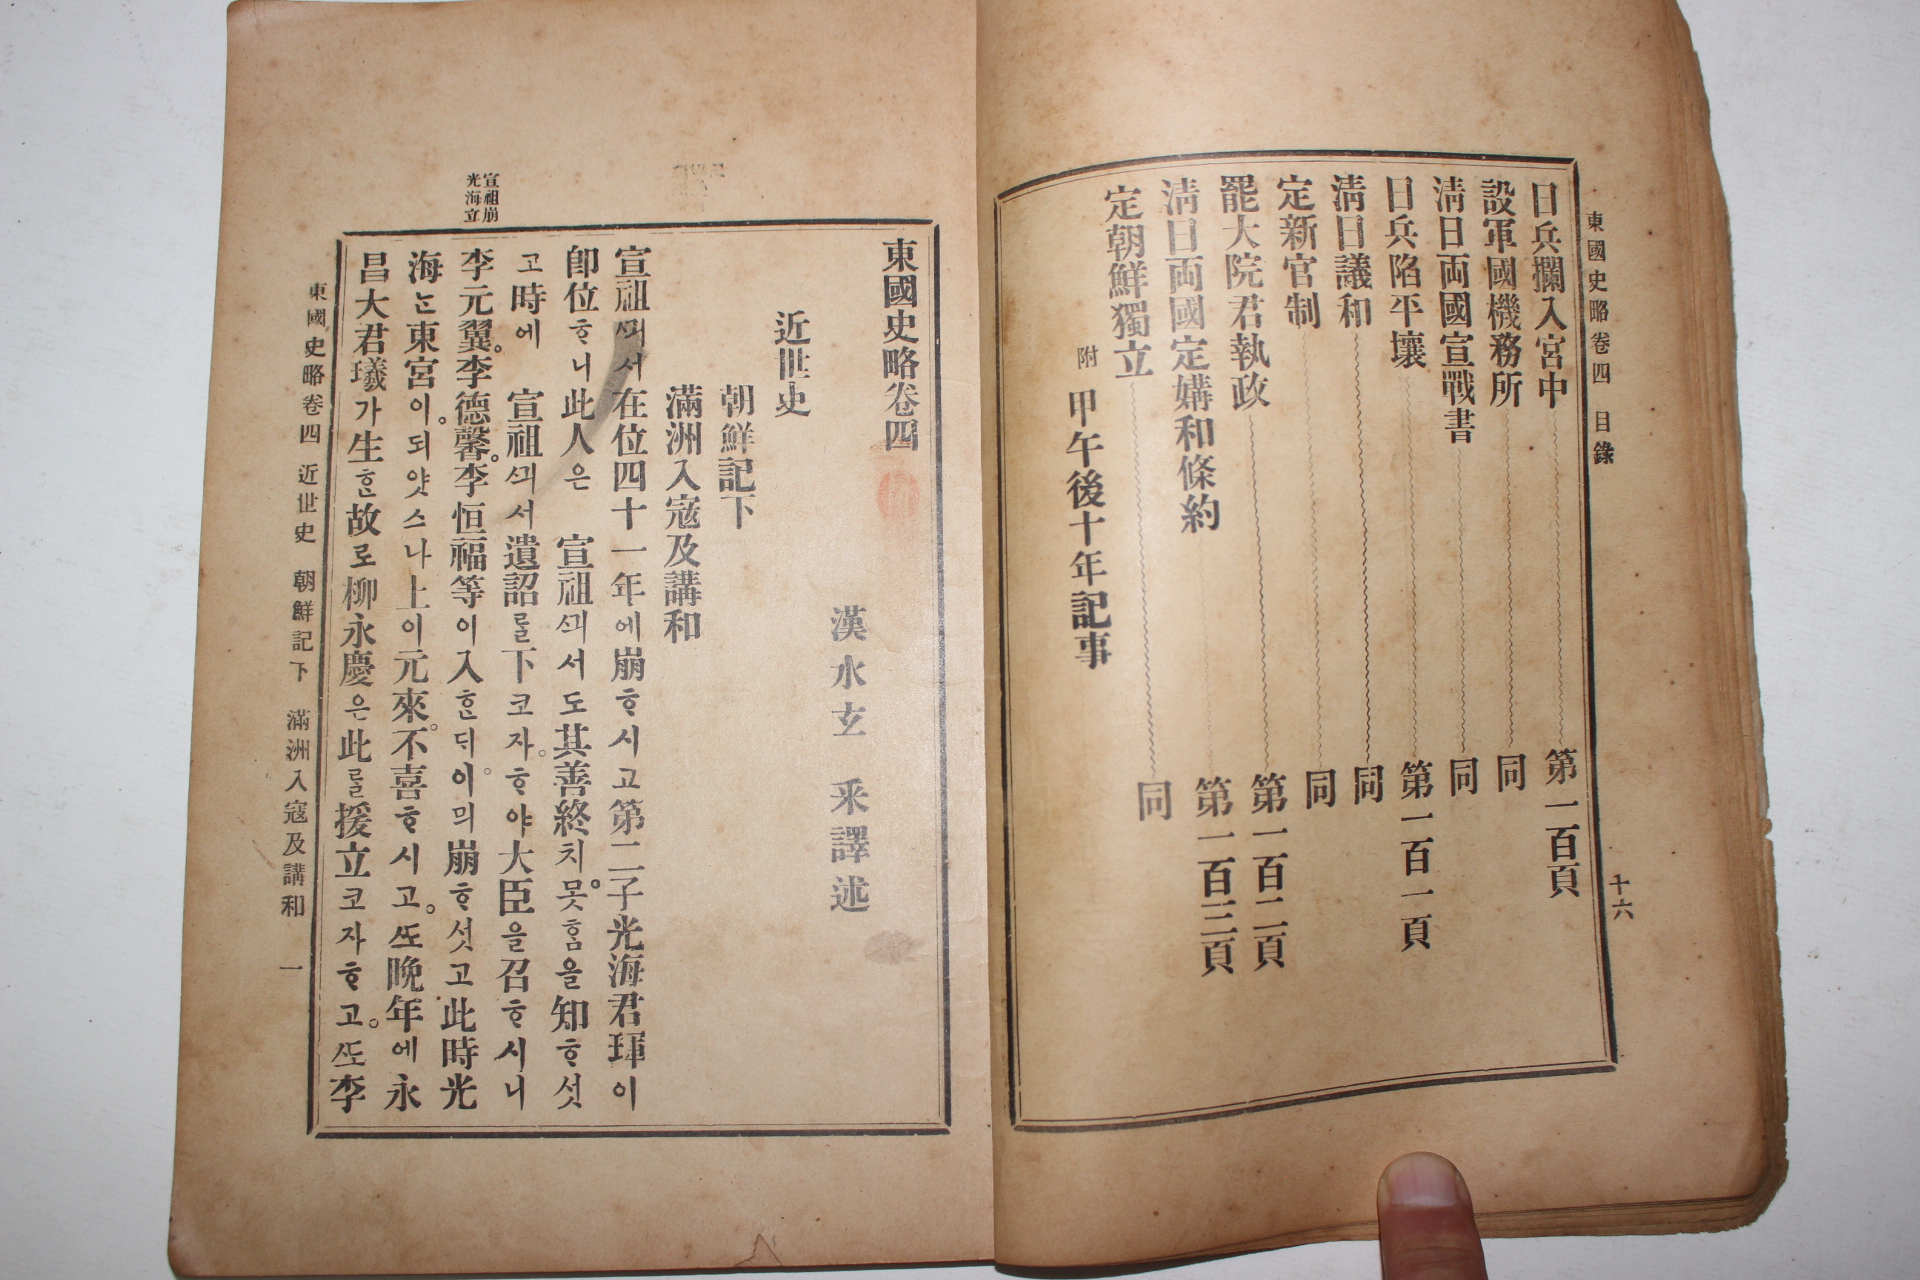 東國史略卷四 目錄
十六
日兵攔入宮中 第一百頁
設軍國機務所 同
淸日両國宣戰書 同
日兵陷平壤 第一百一頁
淸日議和 同
定新官制 同
罷大院君執政 第一百二頁
淸日両國定媾和條約 第一百三頁
定朝鮮獨立 同
附 甲午後十年記事
東國史略卷四
漢水玄 采譯述
近世史
朝鮮記下
滿洲入寇及講和
宣祖ᄭᅴ셔在位四十一年에崩ᄒᆞ시고第二子光海君琿이
卽位ᄒᆞ니此人은 宣祖ᄭᅴ셔도其善終치못ᄒᆞᆷ을知ᄒᆞ셧
고時에 宣祖ᄭᅴ셔遺詔ᄅᆞᆯ下코자ᄒᆞ야大臣을召ᄒᆞ시니
李元翼。李德馨。李恒福等이入ᄒᆞᆫᄃᆡ。이믜崩ᄒᆞ셧고此時光
海ᄂᆞᆫ東宮이。되얏스나上이元來。不喜ᄒᆞ시고。ᄯᅩ晩年에永
昌大君㼁가生ᄒᆞᆫ故로柳永慶은此ᄅᆞᆯ援立코자ᄒᆞ고。ᄯᅩ李
宣祖崩
光海立
東國史略卷四 近世史 朝鮮記下 滿洲入寇及講和 一